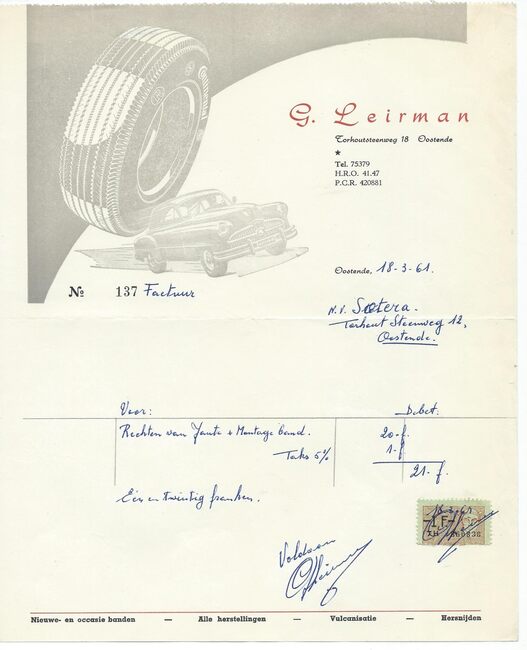 G. Leirman
Torhoutsteenweg 18 Oostende
★
Tel. 75379
H.R.O. 41.47
P.C.R. 420881
Oostende, 18-3-61.
No 137 Factuur
N.V. Soetera.
Torhout Steenweg 12,
Oostende.
Voor: Debet:
Rechten van Jante + Montage band. 20-f.
Taks 5% 1-f.
21-f.
Één en twintig franken.
18-3-61
1 F
Voldaan
Nieuwe- en occasie banden — Alle herstellingen — Vulcanisatie — Hersnijden